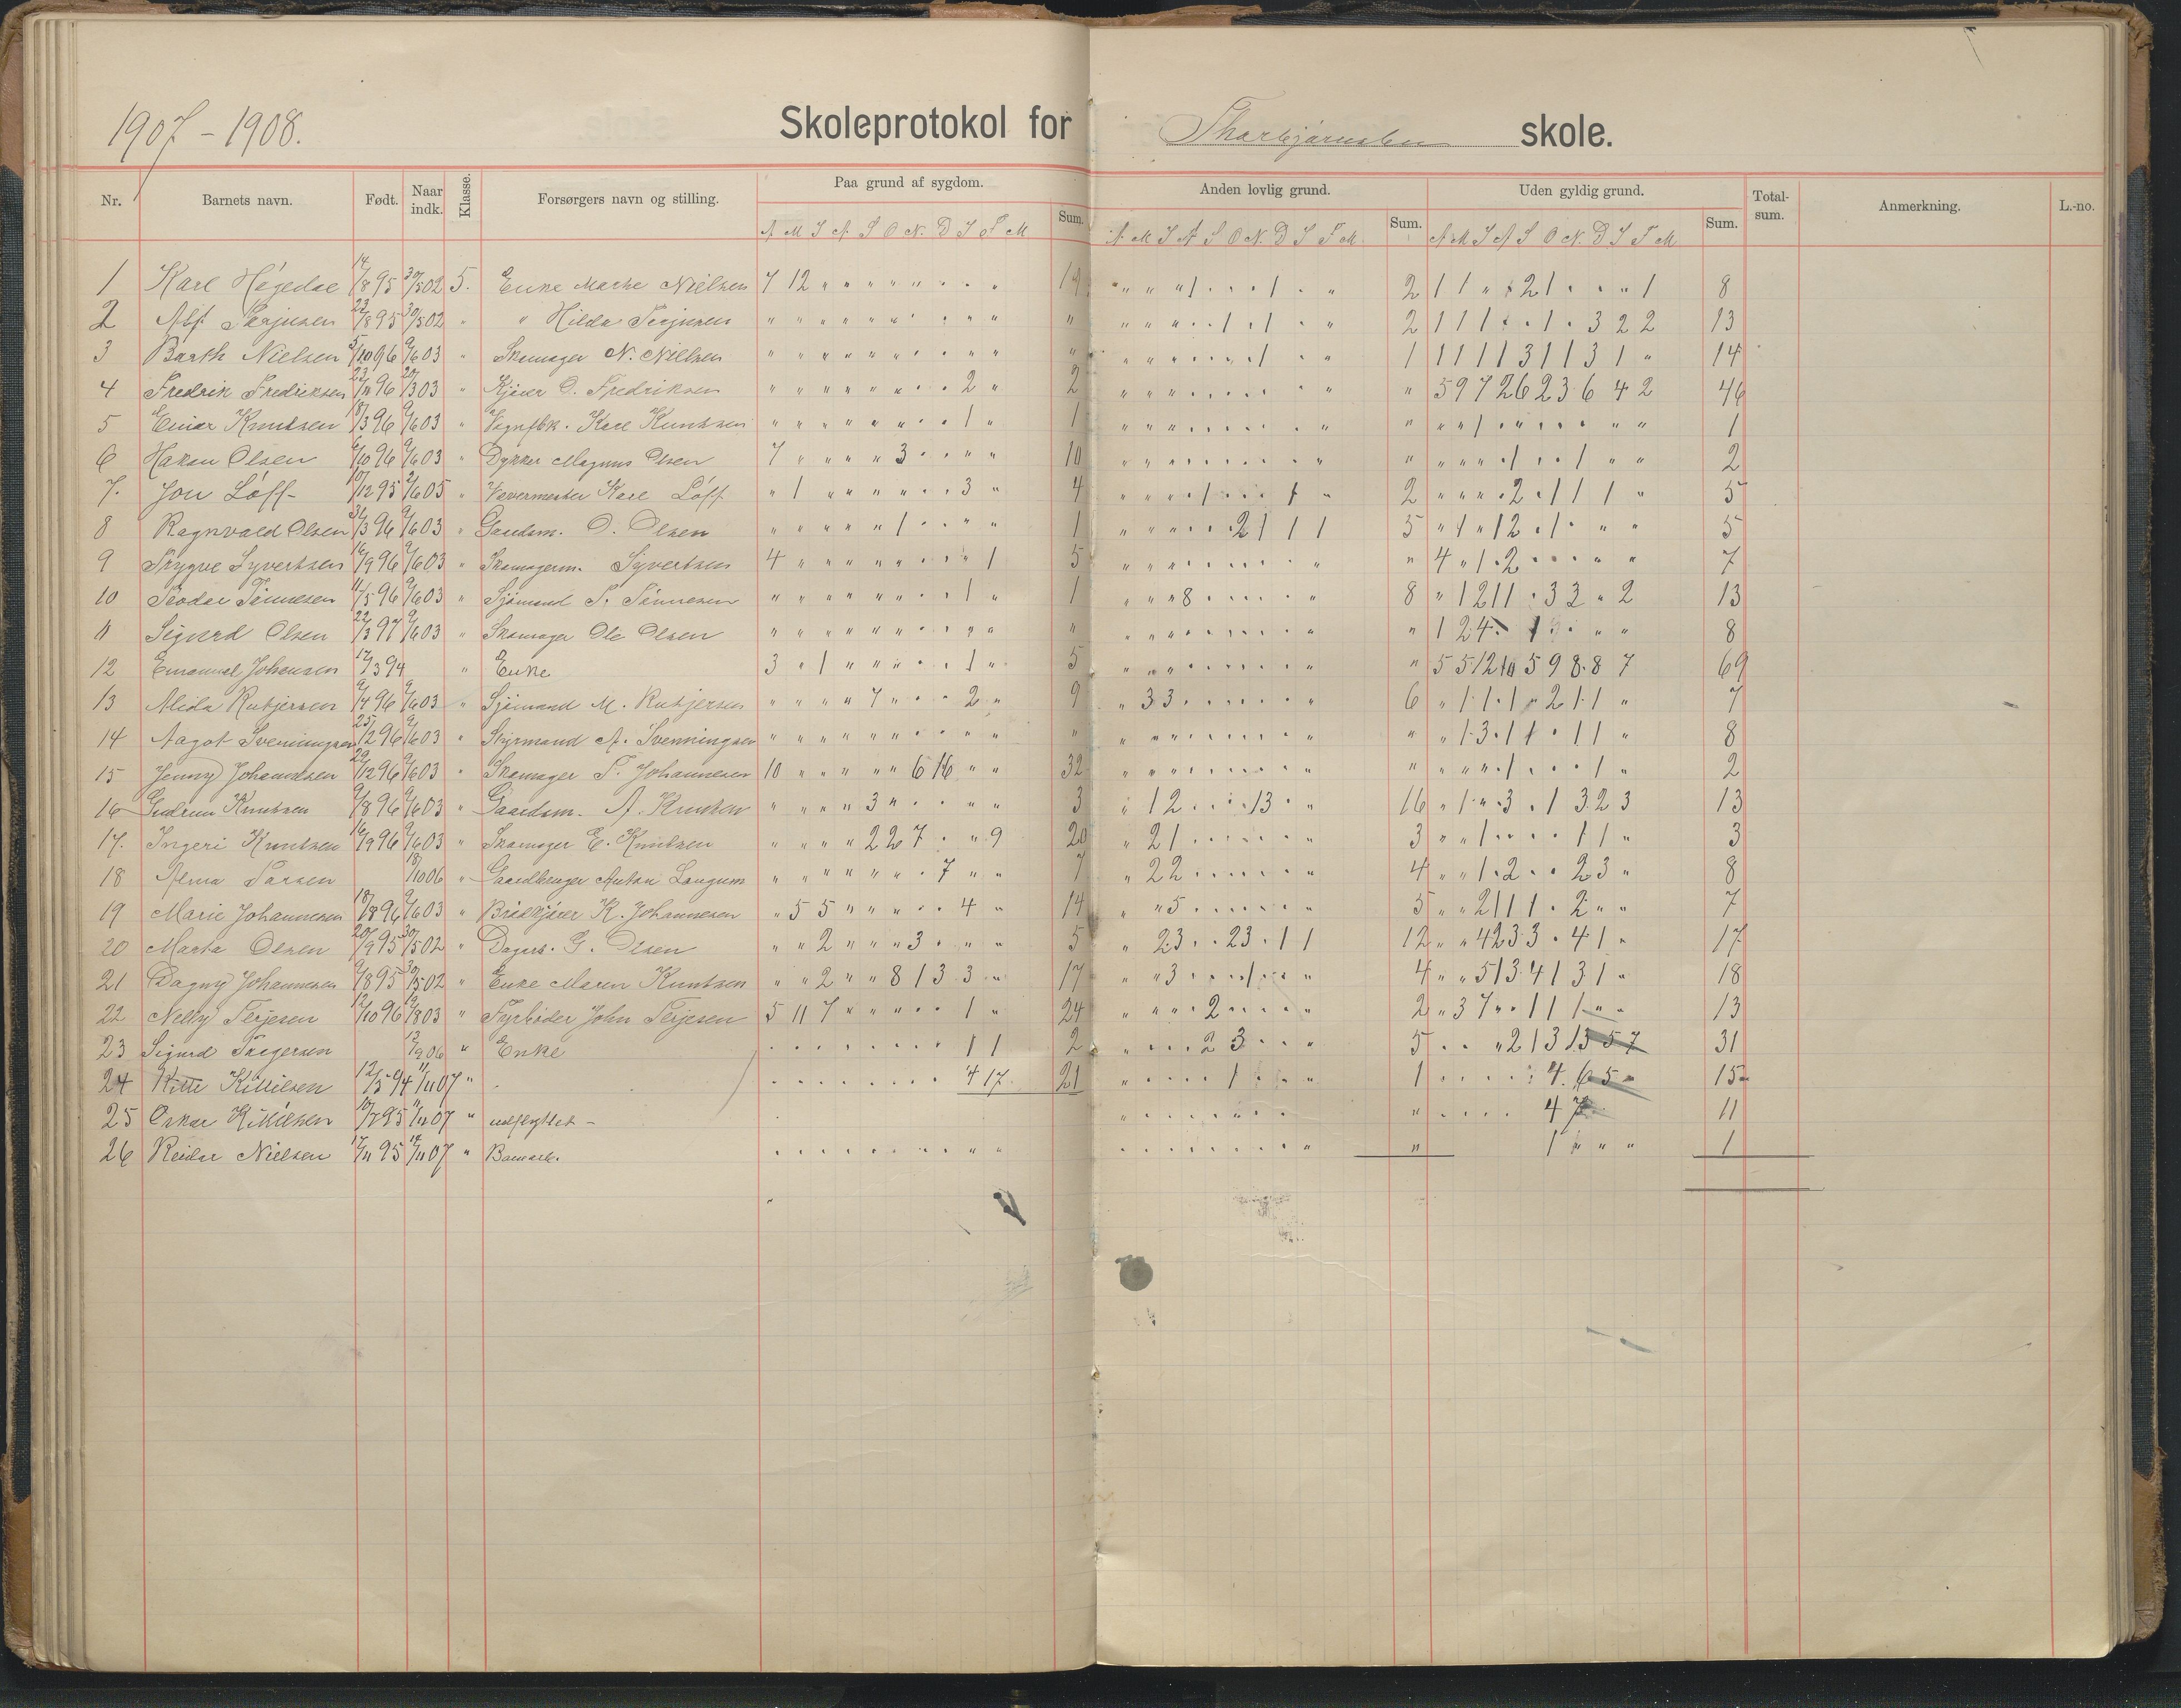 1907 - 1908.
Skoleprotokol for Thorbjørnsbu skole.
Nr. Barnets navn. Født. Naar indk. Klasse. Forsørgers navn og stilling. Paa grund af sygdom. Sum. Anden lovlig grund. Sum. Uden gyldig grund. Sum. Total-sum. Anmerkning. L.-no.
A M J A S O N D J F M A M J A S O N D J F M A M J A S O N D J F M
1 Karl Høgedal 14/8 95 30/5 02 5. Enke Marthe Nielsen 7 12 " " " " " " " " 19 " " " " 1 . . . 1 . " 2 1 1 " 1 2 1 . . " 1 8
2 Alf Terjusen 23/8 95 30/5 02 " " Hilda Terjusen " " " " " " " " " " " 2 1 1 1 . . 1 . 3 2 2 13
3 Barth Nielsen 5/10 96 9/6 03 " Skomager N. Nielsen " " " " " " " " " " " 1 1 1 1 1 3 1 1 3 1 " 14
4 Fredrik Fredriksen 23/11 96 20/3 03 " Kjører O. Fredriksen " " " " " " " " 2 " 2 " 5 9 7 2 6 2 3 6 4 2 46
5 Einar Knutsen 18/3 96 9/6 03 " Vognfbk. Karl Knutsen " " " " " " " " 1 " 1 " " " 1 " " " " " " " 1
6 Hakon Olsen 6/10 96 9/6 03 " Dykker Magnus Olsen 7 " " " " 3 " " " " 10 " " " " " 1 . . 1 " " 2
7. Jon Løff 10/12 95 2/6 05 " Vævermester Karl Løff " 1 " " " " " " 3 " 4 2 " " " . 2 . 1 1 1 " 5
8 Ragnvald Olsen 31/3 96 9/6 03 " Gaardsm. O. Olsen " " " " " 1 " " " " 1 2 1 1 1 5 " 1 " 1 2 . 1 . " " 5
9 Trygve Syvertsen 16/9 96 9/6 03 " Skomagerm. Syvertsen 4 " " " " " " " " 1 5 " 4 " 1 . 2 . . . " " 7
10 Teodor Tønnesen 11/5 96 9/6 03 " Sjømand T. Tønnesen " " " " " " " " 1 " 1 " " " 8 . . . . . " 8 " 1 2 1 1 . 3 3 " 2 13
11 Sigurd Olsen 22/3 97 9/6 03 " Skomager Ole Olsen " " " " " " " " " " " " 1 2 4 . 1 . . " " 8
12 Emanuel Johansen 17/3 94 " Enke 3 " 1 " " " " " 1 " 5 " 5 5 12 10 5 9 8 8 7 69
13 Alida Rubjersen 9/4 96 9/6 03 " Sjømand M. Rubjersen " " " " 7 " " " 2 " 9 " 3 3 . . . . . . " 6 " 1 . 1 . 1 " 2 1 . 1 " 7
14 Aagot Svenningsen 25/2 96 9/6 03 " Styrmand A. Svenningsen " " " " " " " " " " " " " " 1 3 . 1 1 . 1 1 " 8
15 Jenny Johannesen 29/12 96 9/6 03 " Skomager T. Johannesen 10 " " " " " 6 16 " " 32 " " " " " . 1 . . . 1 " 2
16 Gudrun Knutsen 9/8 96 9/6 03 " Gaardsm. A. Knutsen " " " " 3 " " " " " 3 " 1 2 . . . . 13 . " 16 " 1 " " 3 . 1 3 2 3 13
17. Ingeri Knutsen 16/9 96 9/6 03 " Skomager E. Knutsen " " " " 2 2 7 . " 9 20 " 2 1 . . . . . . " 3 " " 1 . . . . 1 1 " 3
18 Alma Larsen 18/10 06 " Gaardbruger Anton Langum " " " " " " " 7 " " 7 " 2 2 . . . . . . " 4 " " 1 . 2 . . 2 3 " 8
19 Marie Johannesen 18/8 96 9/6 03 " Bryekjører K. Johannesen " 5 5 " " " " " 4 " 14 " " 5 . . . . . . " 5 " " 2 1 1 1 . 2 " " 7
20 Marta Olsen 20/9 95 30/5 02 " Dagarb. G. Olsen " " 2 " " " 3 " " " 5 " 2 3 . . 2 3 . 1 1 12 " " 4 2 3 3 . 4 1 " 17
21 Dagny Johannesen 9/8 95 30/5 02 " Enke Maren Knutsen " " 2 " " 8 1 3 3 " 17 " " 3 . . . 1 . . " 4 " " 5 1 3 4 1 3 1 " 18
22 Nelly Terjesen 12/10 96 9/8 03 " Fyrbøder John Terjesen 5 11 7 " " " " " 1 " 24 " " " " 2 . . . . " 2 " 3 7 " . 1 1 1 " " 13
23 Sigurd Torgersen 12/9 06 " Enke . . . . . . . . 1 1 2 " . . . 2 3 . . " 5 . . " 2 1 3 13 5 7 31
24 Kittil Kittilsen 12/5 94 11/11 07 " . . . . . . . . 4 17. 21 1 1 . . . . 4. 6 5 " 15
25 Oskar Kittilsen 10/7 95 11/11 07 " udflyttet - " . . . . 4 7 11
26 Reidar Nielsen 17/11 95 19/11 07 " Bomark. " 1 " " " 1